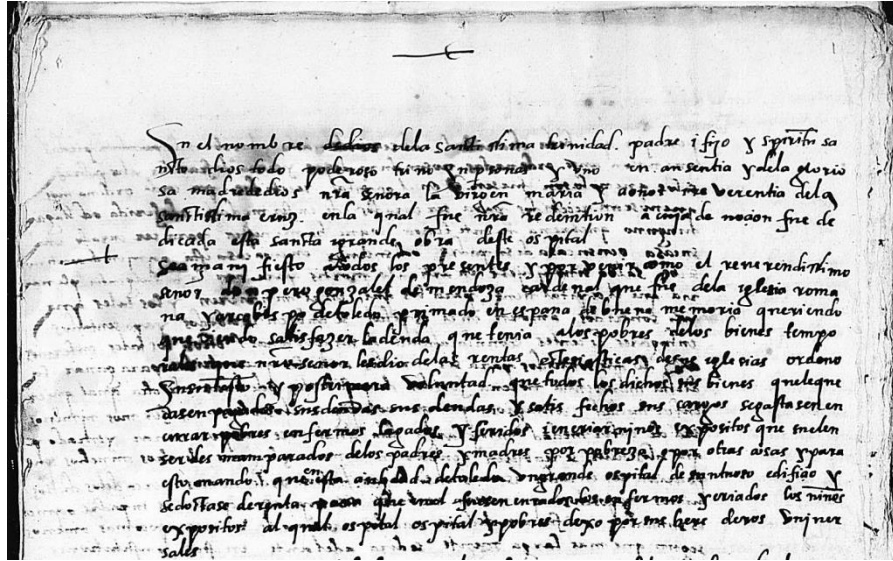 En el nombre dedios dela santissima trinidad padre i fijo y spiritu sa
nto dios todo poderoso trino ynpersonas y uno en ansentia ydela glorio
sa madrededios nra señora la virgen maria y aonor reverentia dela
sanctissima cruz enla qual fue nro redemtion a cuya de nocion fue de
dicada esta sancta ygrande obra deste ospital
sea mani fiesto atodos los presentes y por venir como el reverendissimo
señor don pero gonzalez de mendoza cardenal que fue dela iglesia roma
na yarcobispo detoledo primado en españa de buena memoria queriendo
satisfazer ladeuda que tenia alos pobres delos bienes tempo
rales que nro señor lesdio delas rentas eclesiasticas desus iglesias ordeno
ensutesto y postrimera voluntad que todos los dichos sus bienes queleque
dasen pagadas sus deudas sus y satis fechos sus cargos segastasen en
curar pobres enfermos lagados y feridos i encriar niños expositos que suelen
ser des mamparados delos padres ymadres por pobreza epor otras cosas ypara
esto mando que en esta cibdad detoledo ungrande ospital desuntuoso edifiçio y
sedotase derenta para que enel fuesen curados los enfermos ycriados los niños
expositos al qual ospital ospital ypobres dexo por sus here deros univer
sales